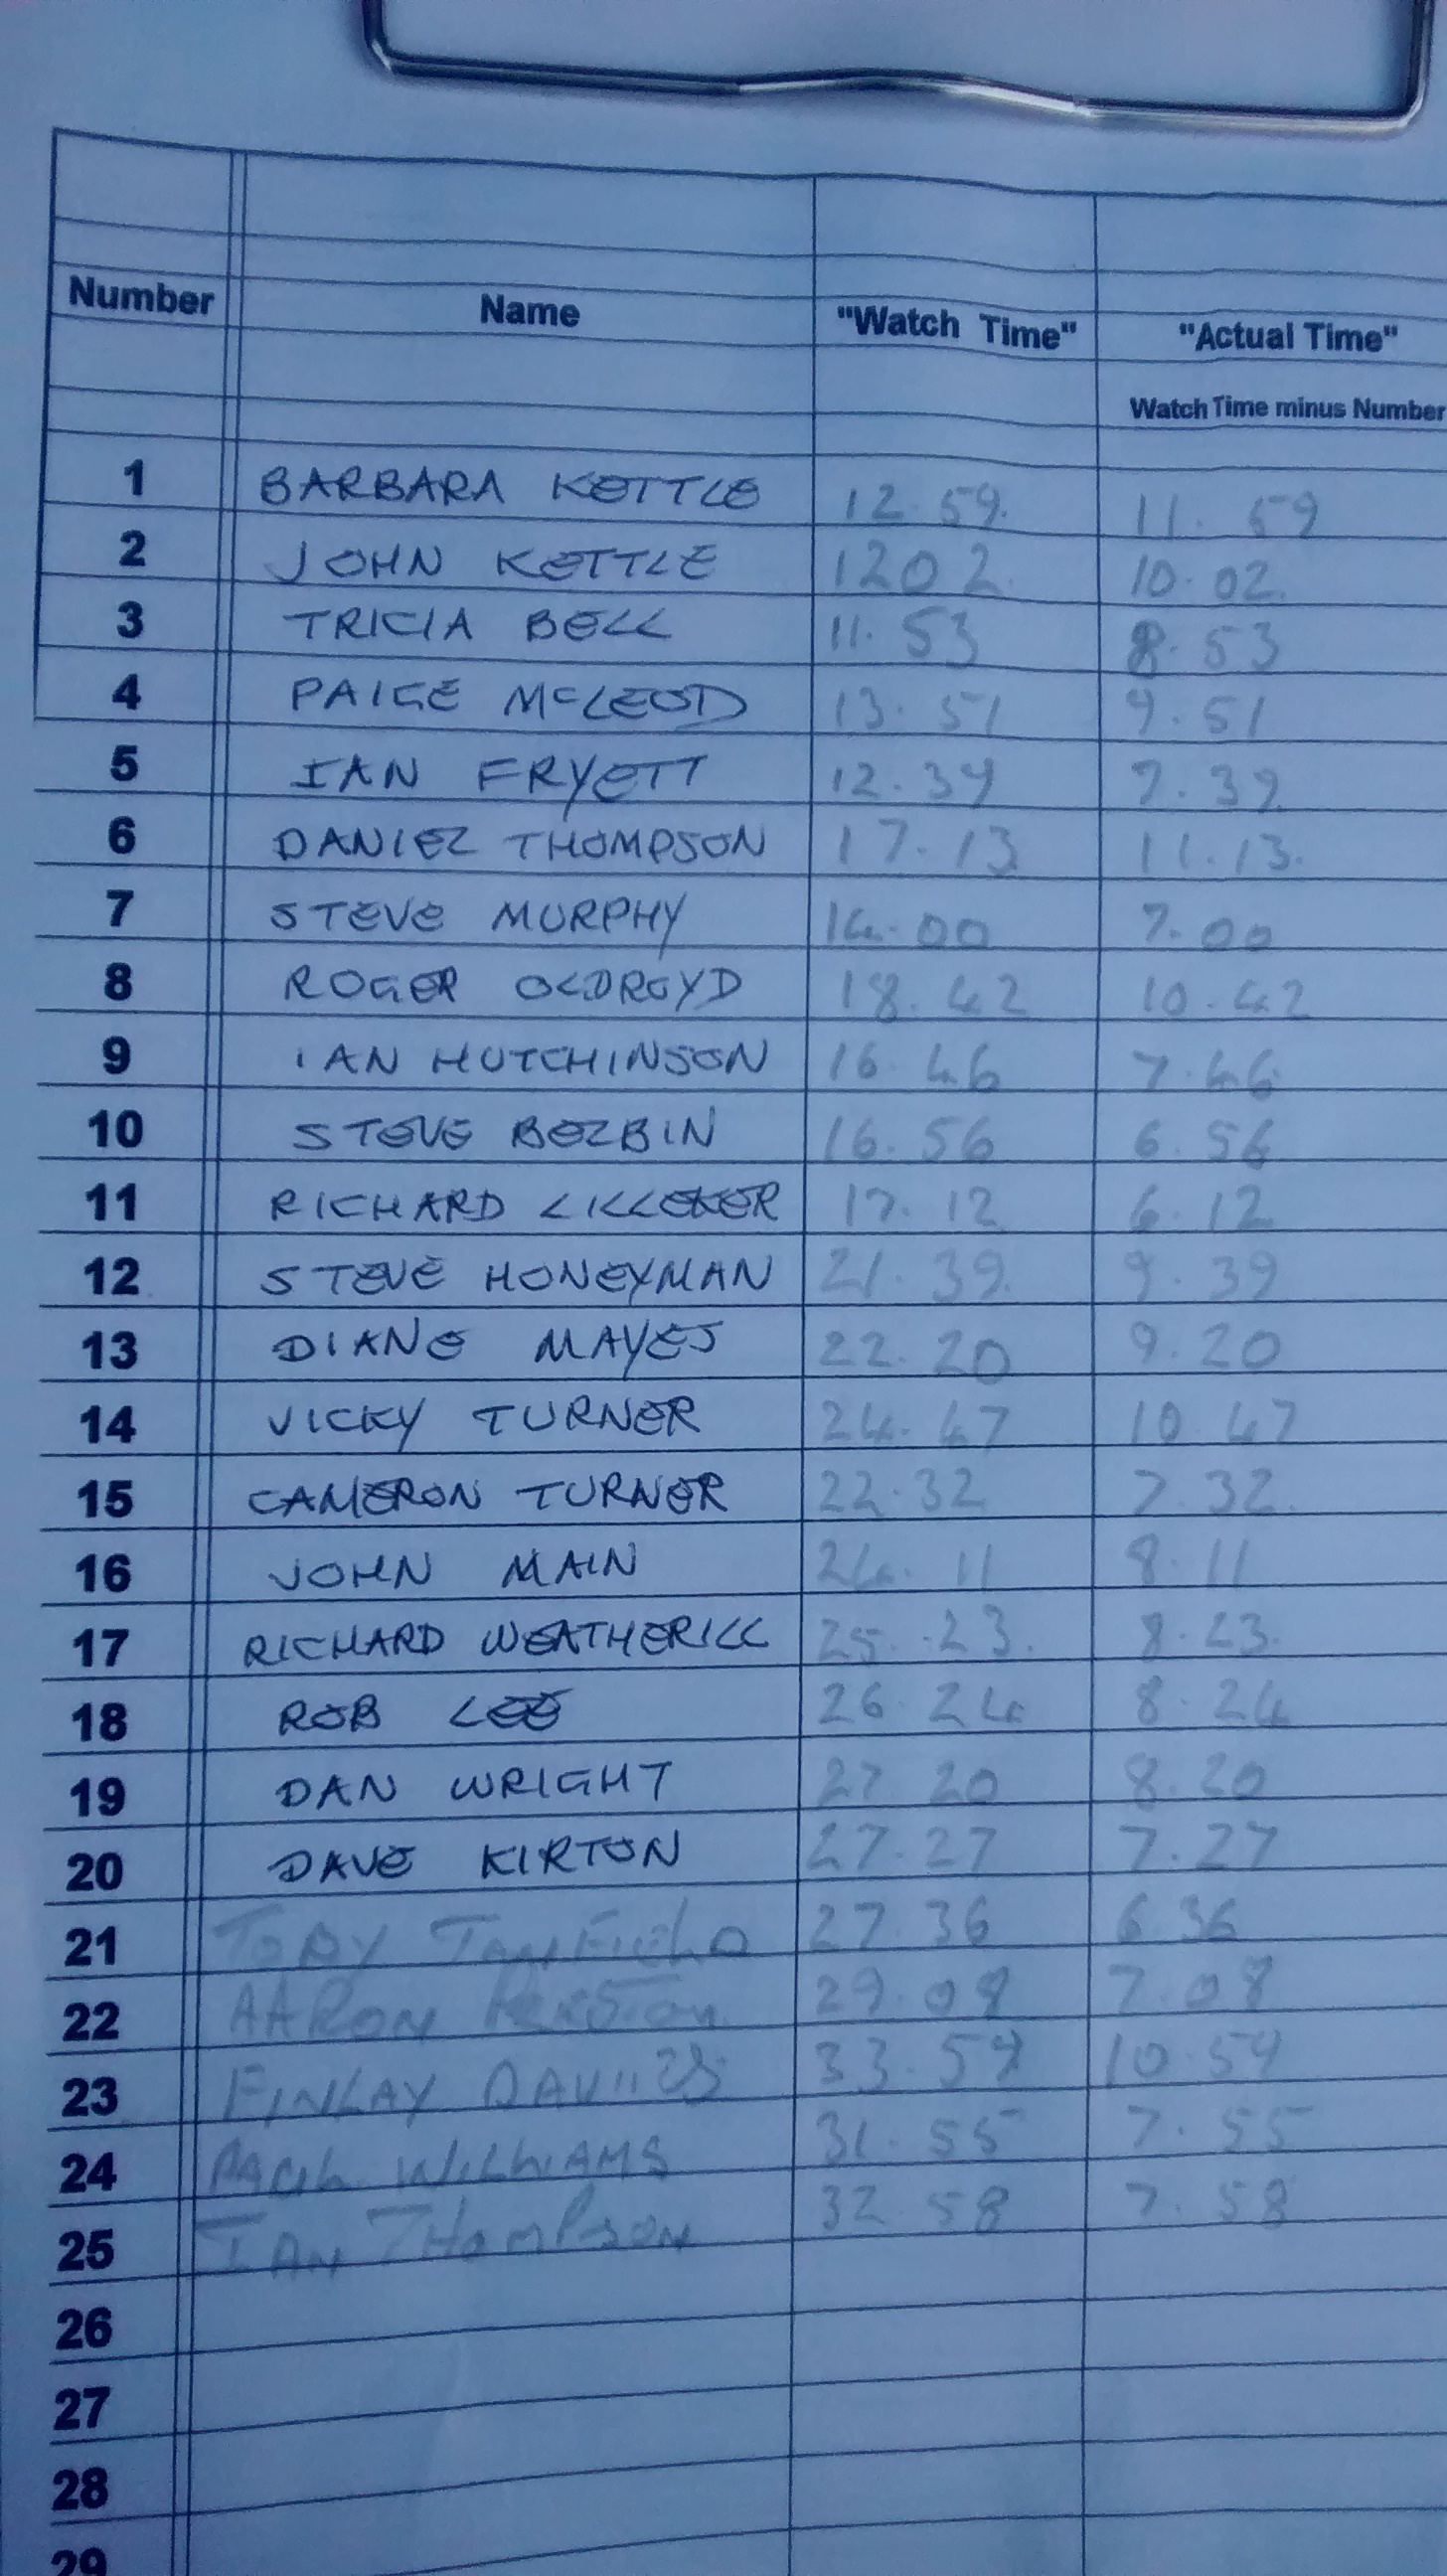 Number Name "Watch Time" "Actual Time"
Watch Time minus Number
1 BARBARA KETTLE 12.59. 11.59
2 JOHN KETTLE 1202. 10.02.
3 TRICIA BELL 11.53 8.53
4 PAIGE McLEOD 13.51 9.51
5 IAN FRYETT 12.39 7.39
6 DANIEL THOMPSON 17.13 11.13.
7 STEVE MURPHY 14.00 7.00
8 ROGER OLDROYD 18.42 10.42
9 IAN HUTCHINSON 16.46 7.46
10 STEVE BELBIN 16.56 6.56
11 RICHARD LILLEKER 17.12 6.12
12 STEVE HONEYMAN 21.39. 9.39
13 DIANE MAYES 22.20 9.20
14 VICKY TURNER 24.47 10 47
15 CAMERON TURNER 22.32 7.32.
16 JOHN MAIN 24.11 8.11
17 RICHARD WEATHERILL 25.23. 8.23.
18 ROB LEE 26.24 8.24
19 DAN WRIGHT 27 20 8.20
20 DAVE KIRTON 27.27 7.27
21 TOBY TANFIELD 27.36 6.36
22 AARON 29.08 7.08
23 FINLAY 33.59 10.59
24 PAUL WILLIAMS 31.55 7.55
25 IAN THOMPSON 32.58 7.58
26
27
28
29